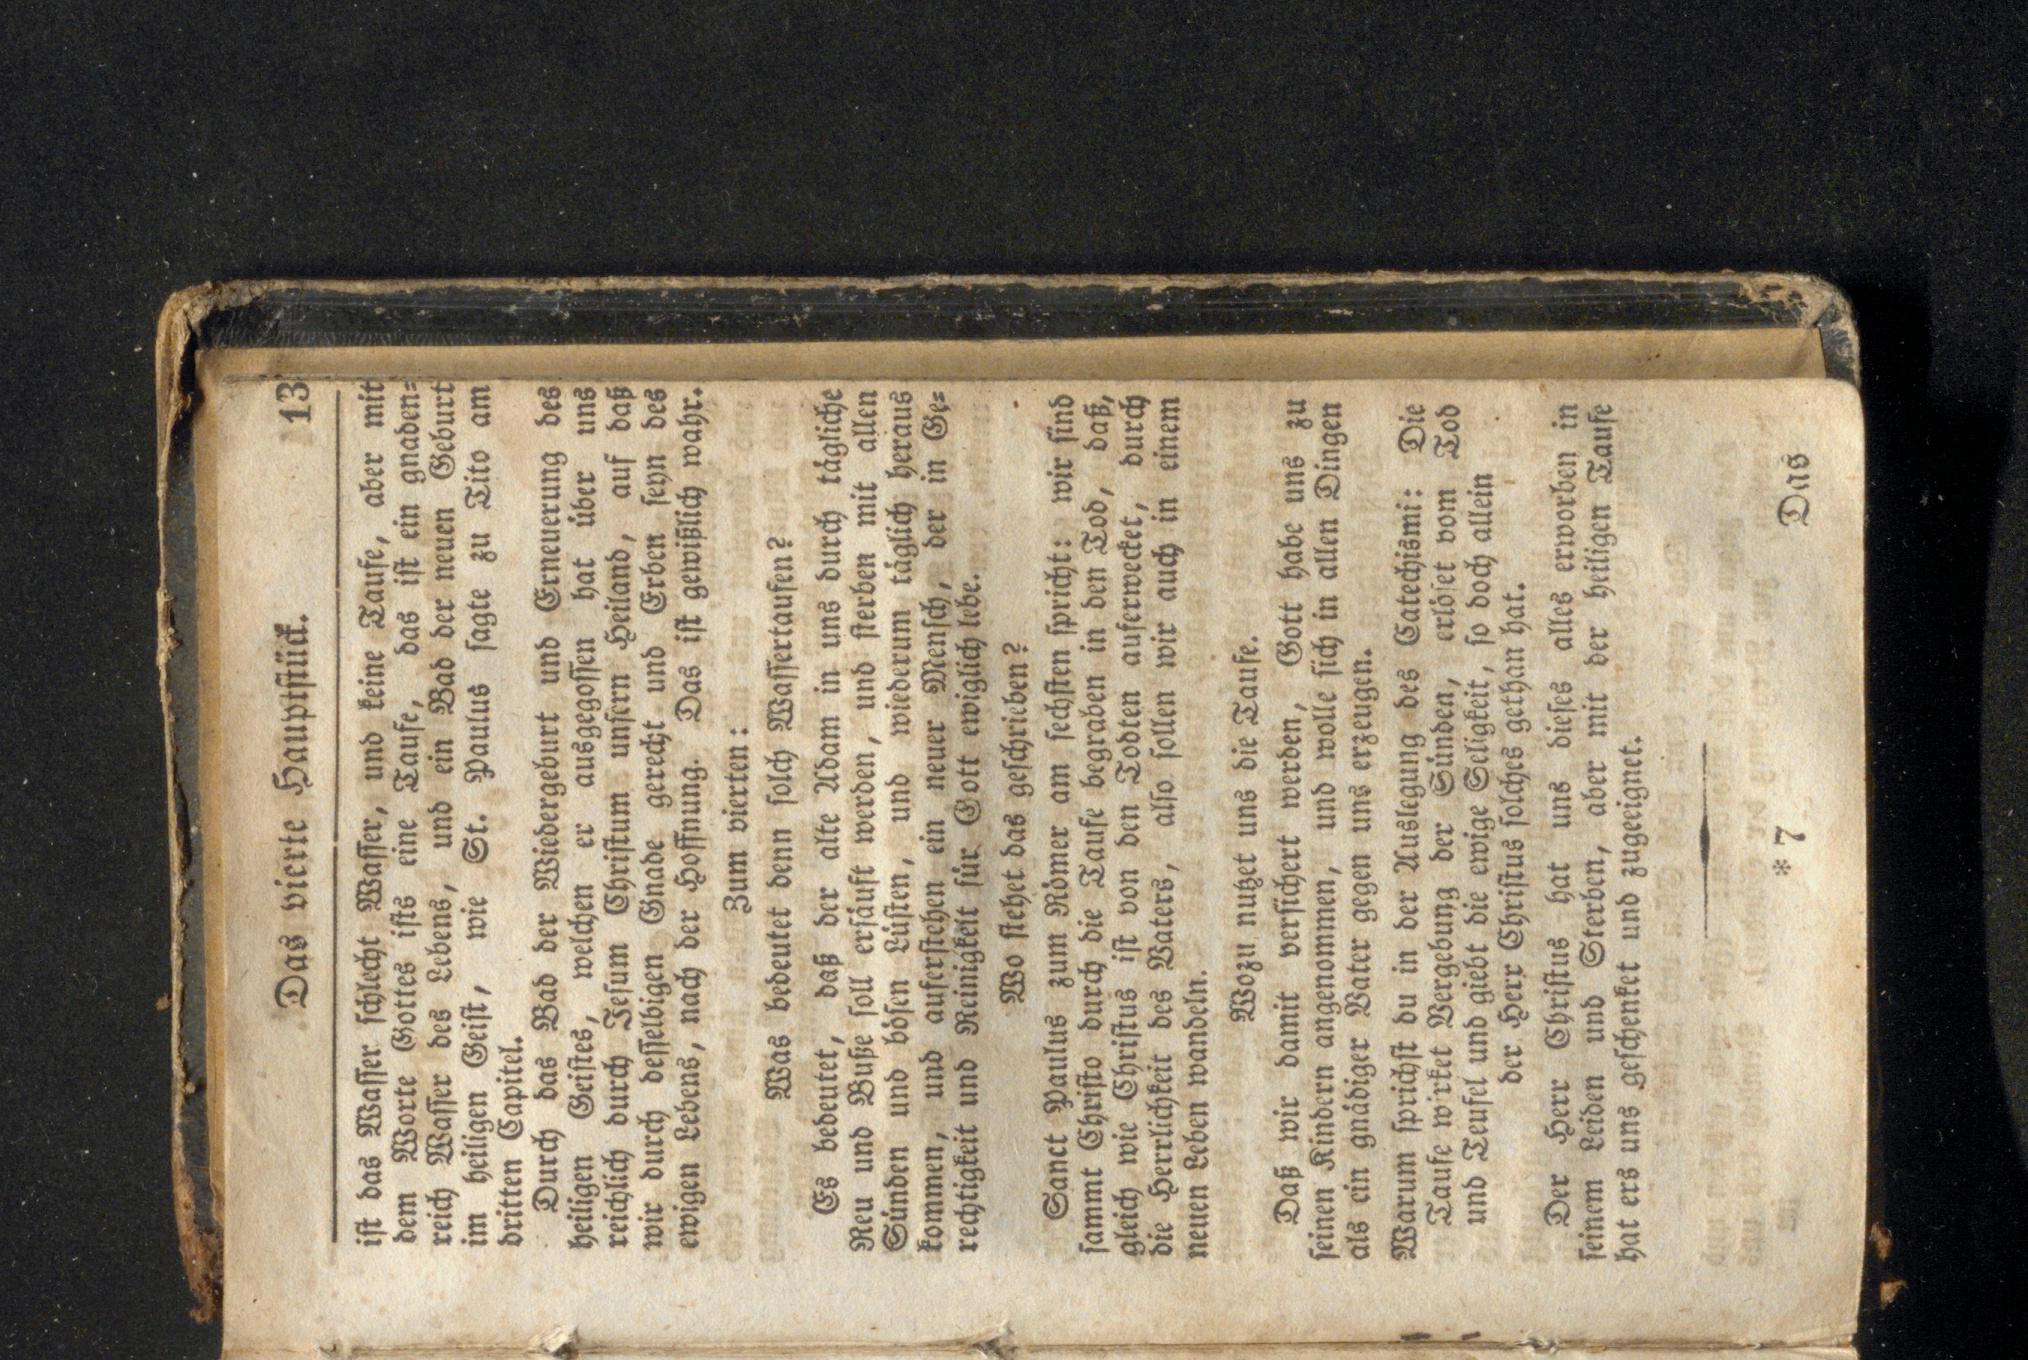 Das vierte Hauptstück. 13
ist das Wasser schlecht Wasser, und keine Taufe, aber mit
dem Worte Gottes ists eine Taufe, das ist ein gnaden=
reich Wasser des Lebens, und ein Bad der neuen Geburt
im heiligen Geist, wie St. Paulus sagte zu Tito am
dritten Capitel.
Durch das Bad der Wiedergeburt und Erneuerung des
heiligen Geistes, welchen er ausgegossen hat über uns
reichlich durch Jesum Christum unsern Heiland, auf daß
wir durch desselbigen Gnade gerecht und Erben seyn des
ewigen Lebens, nach der Hoffnung. Das ist gewißlich wahr.
Zum vierten:
Was bedeutet denn solch Wassertaufen?
Es bedeutet, daß der alte Adam in uns durch tägliche
Reu und Buße soll ersäuft werden, und sterben mit allen
Sünden und bösen Lüsten, und wiederum täglich heraus
kommen, und auferstehen ein neuer Mensch, der in Ge=
rechtigkeit und Reinigkeit für Gott ewiglich lebe.
Wo stehet das geschrieben?
Sanct Paulus zum Römer am sechsten spricht: wir sind
sammt Christo durch die Taufe begraben in den Tod, daß,
gleich wie Christus ist von den Todten auferwecket, durch
die Herrlichkeit des Vaters, also sollen wir auch in einem
neuen Leben wandeln.
Wozu nutzet uns die Taufe.
Daß wir damit versichert werden, Gott habe uns zu
seinen Kindern angenommen, und wolle sich in allen Dingen
als ein gnädiger Vater gegen uns erzeugen.
Warum sprichst du in der Auslegung des Catechismi: Die
Taufe wirket Vergebung der Sünden, erlöset vom Tod
und Teufel und giebt die ewige Seligkeit, so doch allein
der Herr Christus solches gethan hat.
Der Herr Christus hat uns dieses alles erworben in
seinem Leiden und Sterben, aber mit der heiligen Taufe
hat ers uns geschenket und zugeeignet.
*7 Das